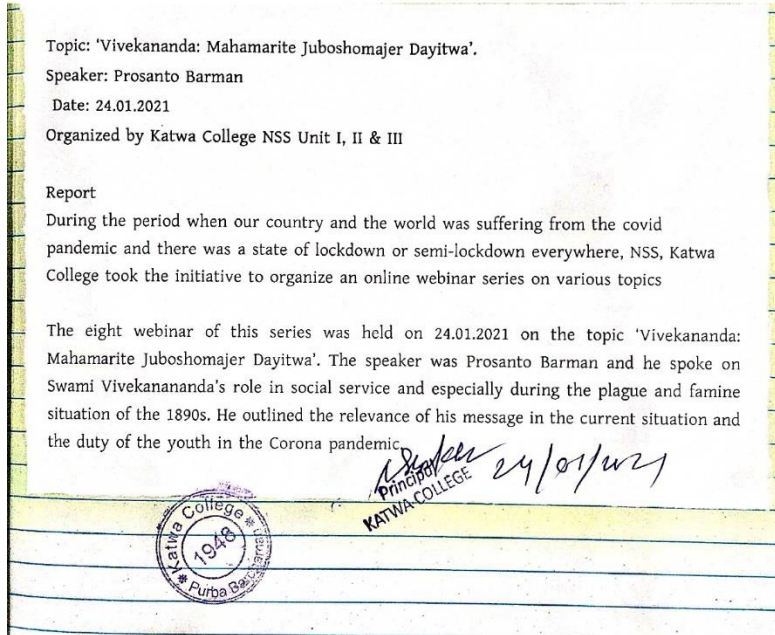 Topic: ‘Vivekananda: Mahamarite Juboshomajer Dayitwa’.
Speaker: Prosanto Barman
Date: 24.01.2021
Organized by Katwa College NSS Unit I, II & III
Report
During the period when our country and the world was suffering from the covid
pandemic and there was a state of lockdown or semi-lockdown everywhere, NSS, Katwa
College took the initiative to organize an online webinar series on various topics
The eight webinar of this series was held on 24.01.2021 on the topic ‘Vivekananda:
Mahamarite Juboshomajer Dayitwa’. The speaker was Prosanto Barman and he spoke on
Swami Vivekanananda’s role in social service and especially during the plague and famine
situation of the 1890s. He outlined the relevance of his message in the current situation and
the duty of the youth in the Corona pandemic.
24/01/2021
Principal
KATWA COLLEGE
Katwa College
1948
Purba